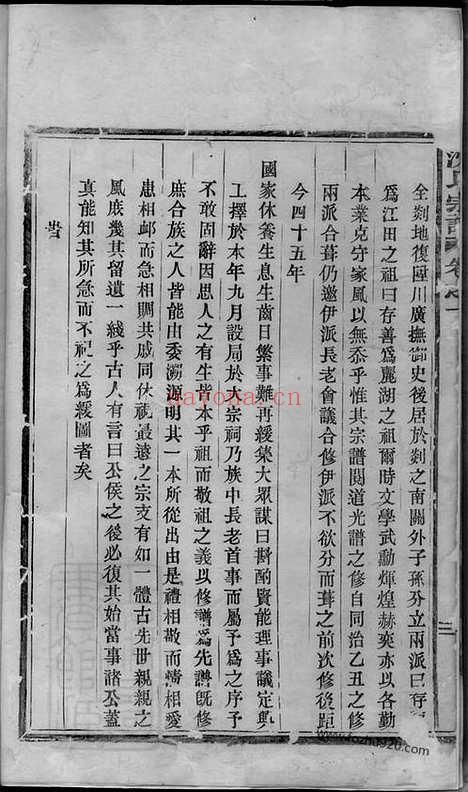 全剡地復陞川廣撫御史後居於剡之南關外子孫分立兩派曰存
爲江田之祖曰存善爲麗湖之祖爾時文學武勳煇煌赫奕亦以各勤
本業克守家風以無忝乎惟其宗譜閱道光譜之修自同治乙丑之修
兩派合葺仍邀伊派長老會議合修伊派不欲分而葺之前次修後距
今四十五年
國家休養生息生齒日繁事難再緩集大眾謀曰斟酌賢能理事議定興
工擇於本年九月設局於大宗祠乃族中長老首事而屬予爲之序予
不敢固辭因思人之有生皆本乎祖而敬祖之義以修譜爲先譜既修
庶合族之人皆能由委溯源明其一本所從出由是禮相敬而情相愛
患相卹而急相賙共戚同休視最遠之宗支有如一體古先世親親之
風庶幾其留遺一綫乎古人有言曰公侯之後必復其始當事諸公蓋
真能知其所急而不視之爲緩圖者矣
旹
氏宗譜
卷之一
nayona.cn
www.fozhu920.com